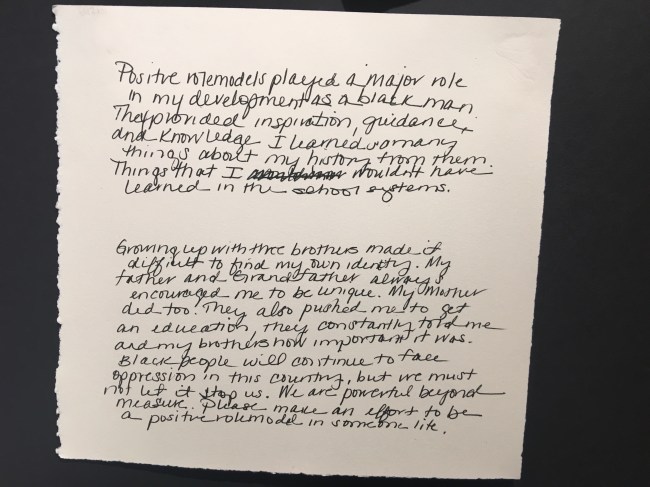 Positive rolemodels played a major role
in my development as a black man.
They provided inspiration, guidance,
and knowledge I learned many
things about my history from them.
Things that I wouldn't have
learned in the school systems.
Growing up with three brothers made it
difficult to find my own identity. My
father and Grandfather always
encouraged me to be unique. My Mother
did too. They also pushed me to get
an education, they constantly told me
and my brothers how important it was.
Black people will continue to face
oppression in this country, but we must
not let it stop us. We are powerful beyond
measure. Please make an effort to be
a positive rolemodel in someone life.